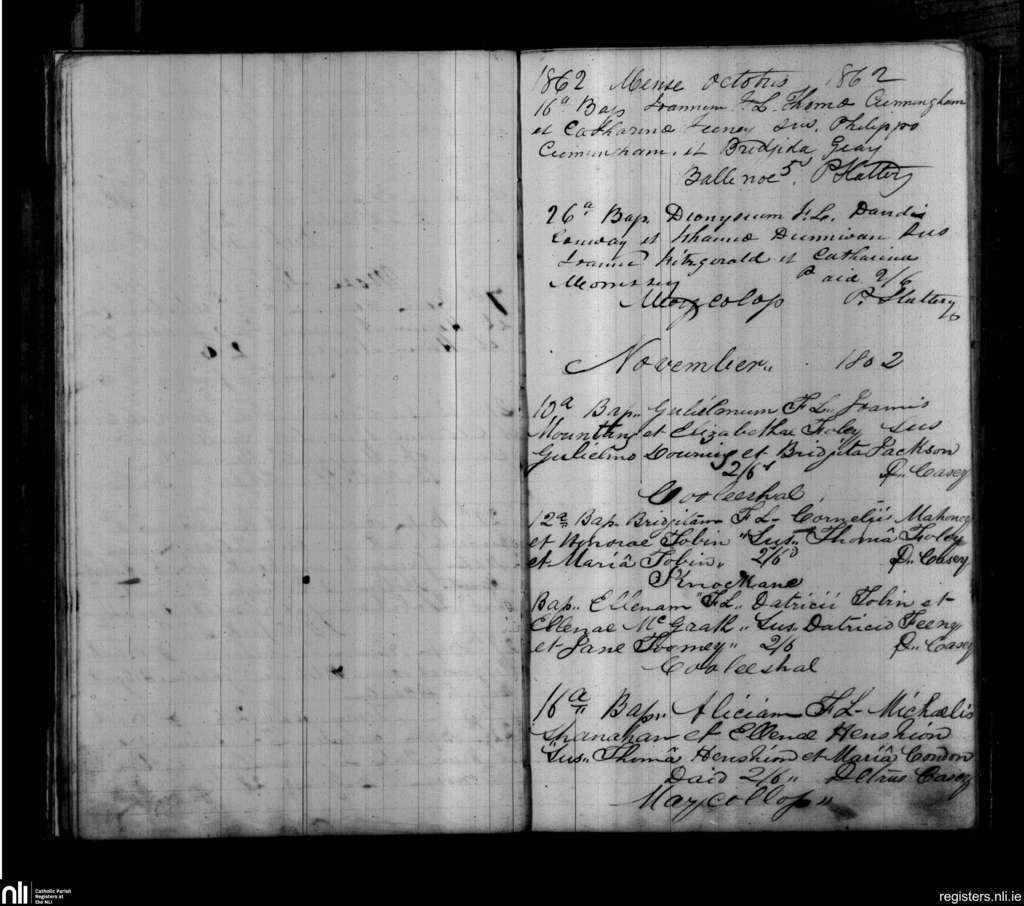 1862 Mense Octobris 1862
16ª Bap Joannem F.L. Thomæ Cunningham
et Catharinæ Feeney Sus. Philippo
Cunningham. et Bridgida Geay
Ballenoe 5ˢ. P Slattery
26ª Bap. Dionysium F.L. David
Conway et Dunnivan Sus
Joanne Fitzgerald et Catharina
Morrissey Paid 2/6
Mogcolop P. Slattery
November„ 1862
10ª Bap„ Gulielmum F L„ Joannis
Mountain et Elizabethae Foley Sus
Gulielmo Downing et Bridgita Jackson
2/6ˢ P„ Casey
Cooleeshal
12ª Bap. Bridgitam F L- Cornelii Mahoney
et Honorae Tobin "Sus„ Thomâ Foley
et Mariâ Tobin„ 2/6ᴰ P„ Casey
Knockane
Bap„ Ellenam F L„ Patricii Tobin et
Ellenae Mᶜ Grath „ Sus. Patricio Feeny
et Jane Toomey" 2/6 P„ Casey
Cooleeshal
16ª Bap„ Aliciam F L- Michælis
Shanahan et Ellenæ Henshion
Sus„ Thomâ Henshion et Mariâ Condon
Paid 2/6„ Petrus Casey
Maycollop"
nli Catholic Parish
Registers at
the NLI
registers.nli.ie